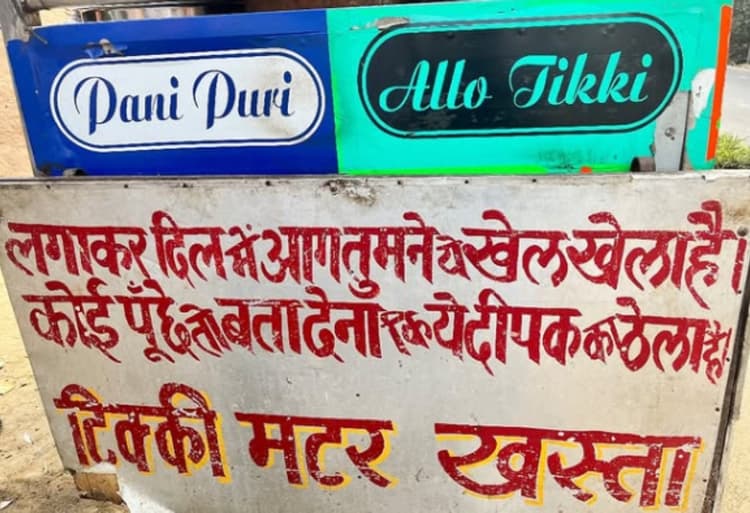 Pani Puri Allo Tikki
लगाकर दिल में आग तुमने ये खेल खेला है।
कोई पूँछे तो बता देना कि ये दीपक का ठेला है।
टिक्की मटर खस्ता